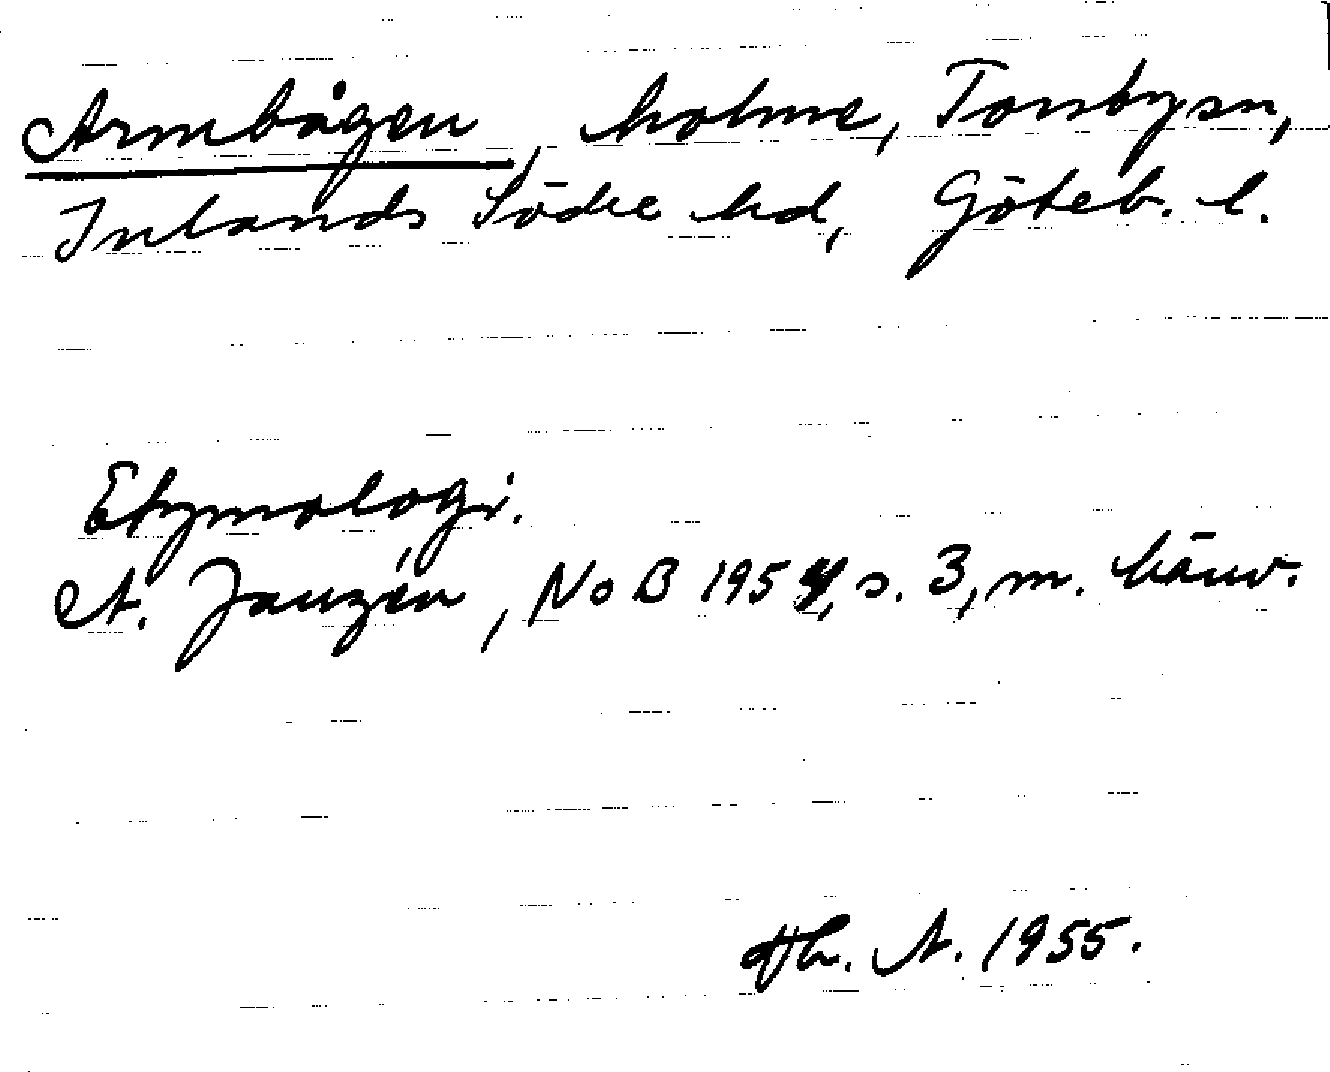 Armbågen, holme, Torsbysn,
Inlands Södre hd, Göteb. l.
Etymologi.
A. Janzén, NoB 1954, s. 3, m. hänv.
A. 1955.